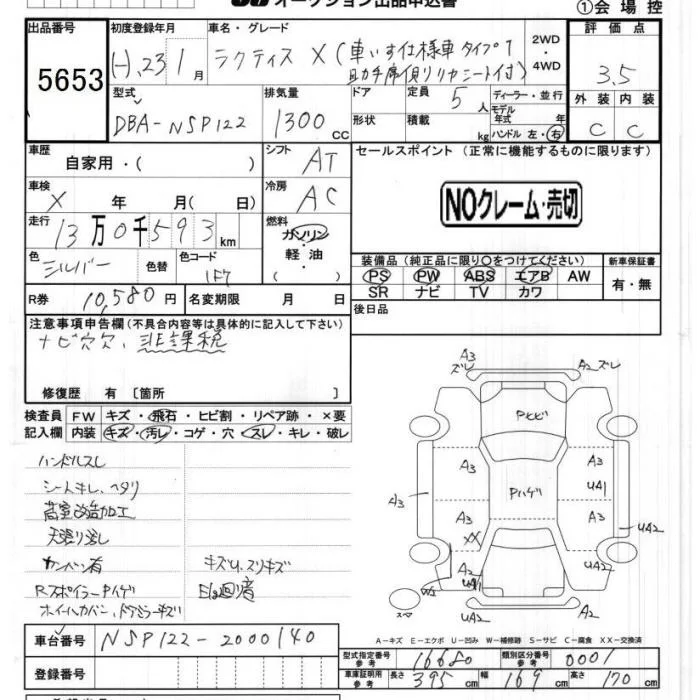 オークション出品申込書
①会場控
出品番号
5653
初度登録年月
H.23 1月
車名・グレード
ラクティス X (車いす仕様車 タイプ1
助手席側リヤシート付)
2WD
・
4WD
評価点
3.5
外装 内装
C C
型式
DBA-NSP122
排気量
1300cc
ドア
形状
定員 5人
積載 kg
ディーラー・並行
モデル年式 年
ハンドル 左・右
車歴
自家用・( )
シフト AT
車検
X 年 月( 日)
冷房 AC
走行
13万0千593km
燃料
ガソリン
・
軽油
( )
色
シルバー
色替
色コード
1F7
セールスポイント (正常に機能するものに限ります)
NOクレーム・売切
装備品 (純正品に限り○をつけてください)
PS PW ABS エアB AW
SR ナビ TV カワ
新車保証書
有・無
R券 10,580円
名変期限 月 日
後日品
注意事項申告欄(不具合内容等は具体的に記入して下さい)
ナビ穴穴、非課税
修復歴 有 [箇所 ]
検査員
記入欄
FW キズ・飛石・ヒビ割・リペア跡・×要
内装 キズ・汚レ・コゲ・穴・スレ・キレ・破レ
ハンドルスレ
シートキレ、ヘタリ
荷室改造加工
天張り汚レ
カンバン有
キズU、スリキズ
Rスポイラー Pハゲ
ホイールカバー、ドアミラーキズ
A3
ズレ
A2 ズレ
Pトビ
A3
A3
UA1
Pハゲ
A3
A3
A3
XX
UA2
A2
UA1
UA2
W2
スペ
UA2
A2
A-キズ E-エクボ U-凹み W-補修跡 S-サビ C-腐食 XX-交換済
車台番号 NSP122-2000140
登録番号
型式指定番号
参考
16680
類別区分番号
参考
0001
車庫証明用
参考
長さ 395cm 幅 169cm 高さ 170cm